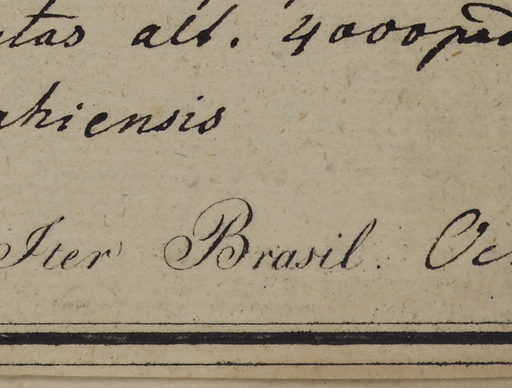 itas alt. 4000 ped
ahiensis
Iter Brasil. Oc